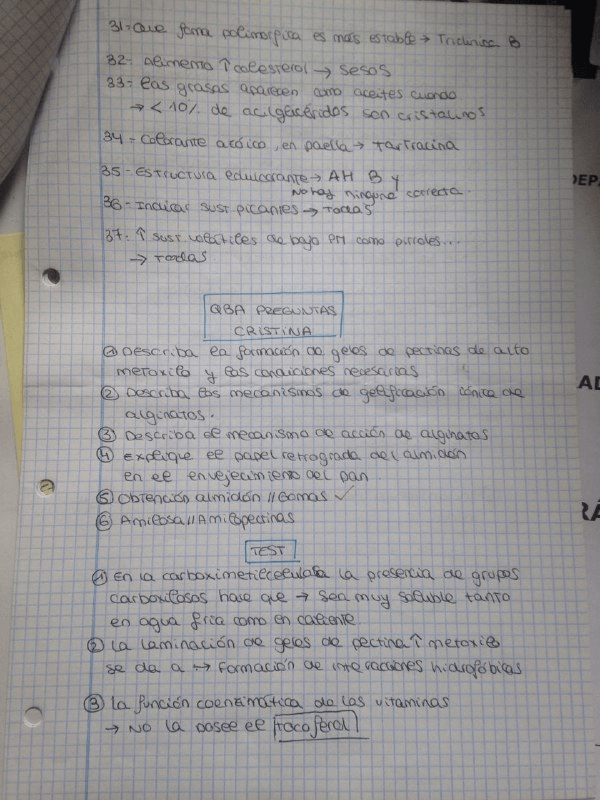 31- Que forma polimorfica es más estable → Triclinica B
32- Alimento ↑ colesterol → sesos
33- Las grasas aparecen como aceites cuando
→ < 10% de acilglicéridos son cristalinos
34- Colorante azóico, en paella → tartracina
35- Estructura edulcorante → AH B y
No hay ninguna correcta.
36- Indicar sust picantes → Todas
37- ↑ sust volátiles de bajo PM como pirroles...
→ Todas
QBA PREGUNTAS
CRISTINA
① Describa la formación de geles de pectinas de alto
metoxilo y las condiciones necesarias
② Describa los mecanismos de gelificación iónica de
alginatos.
③ Describa el mecanismo de acción de alginatos
④ explique el papel retrograda del almidón
en el envejecimiento del pan.
⑤ Obtención almidón // Gomas ✓
⑥ Amilosa // Amilopectinas
TEST
① En la carboximetilcelulosa la presencia de grupos
carboxilosos hace que → sea muy soluble tanto
en agua fria como en caliente
② La laminación de geles de pectina ↑ metoxilo
se da a → Formación de interacciones hidrofóbicas
③ La función coenzimática de las vitaminas
→ No la posee el tocoferol
DEPA
AD
RÁ